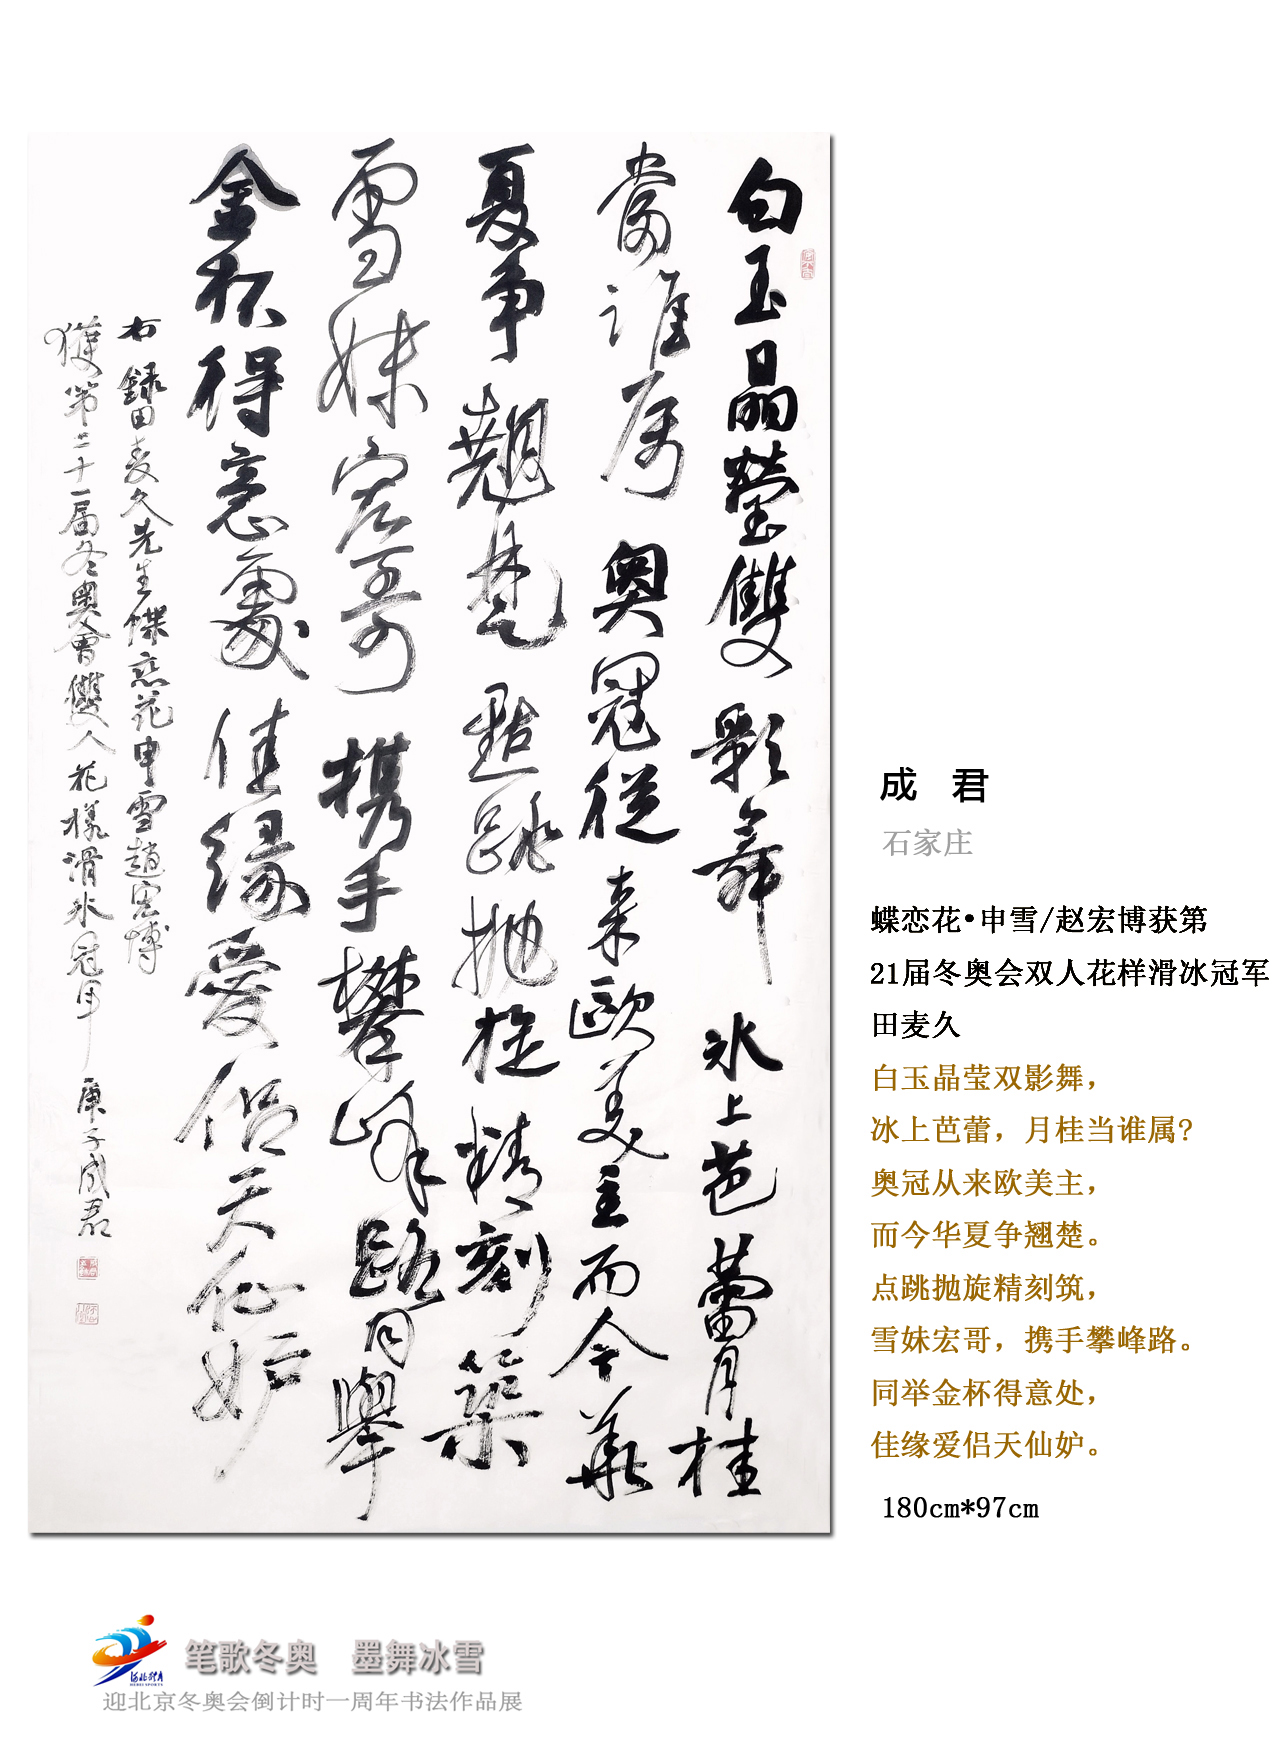 白玉晶瑩雙影舞冰上芭蕾月桂
當谁属奥冠從来歐美主而今華
夏争翹楚點跳抛旋精刻築
雪妹宏哥携手攀峰路同舉
金杯得意處佳缘愛侣天仙妒
右録田麦久先生蝶恋花申雪趙宏博
獲第二十一届冬奥會雙人花樣滑冰冠军 庚子成君
成 君
石家庄
蝶恋花•申雪/赵宏博获第
21届冬奥会双人花样滑冰冠军
田麦久
白玉晶莹双影舞，
冰上芭蕾，月桂当谁属?
奥冠从来欧美主，
而今华夏争翘楚。
点跳抛旋精刻筑，
雪妹宏哥，携手攀峰路。
同举金杯得意处，
佳缘爱侣天仙妒。
180cm*97cm
河北体育
HEBEI SPORTS
笔歌冬奥 墨舞冰雪
迎北京冬奥会倒计时一周年书法作品展